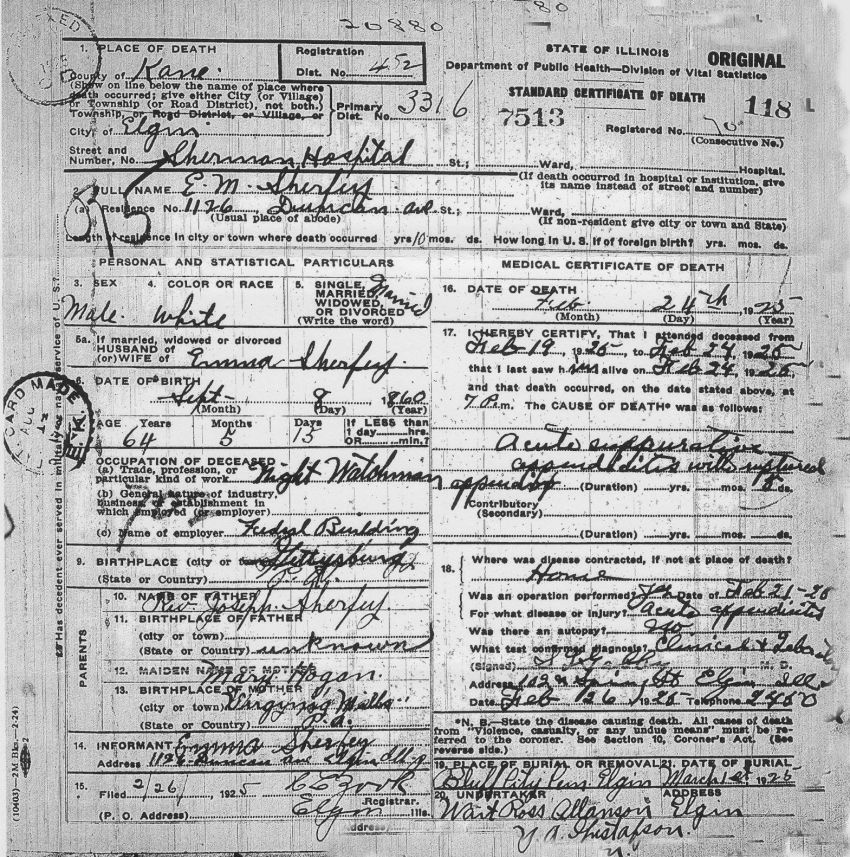 20880
80
1. PLACE OF DEATH
County of Kane.
(Show on line below the name of place where
death occurred; give either City (or Village)
or Township (or Road District), not both.)
Township, or Road District, or Village, or
City of Elgin
Street and
Number, No. Sherman Hospital St.; Ward, Hospital.
Registration
Dist. No. 452
Primary
Dist. No. 3316
STATE OF ILLINOIS
Department of Public Health—Division of Vital Statistics
ORIGINAL
STANDARD CERTIFICATE OF DEATH
118
7513
Registered No. 70
(Consecutive No.)
(If death occurred in hospital or institution, give
its name instead of street and number)
2. FULL NAME E. M. Sherfey
(a) Residence No. 1126, Duncan ave St.; Ward,
(Usual place of abode)
(If non-resident give city or town and State)
Length of residence in city or town where death occurred yrs 10 mos. ds. How long in U. S. if of foreign birth? yrs. mos. ds.
PERSONAL AND STATISTICAL PARTICULARS
3. SEX
Male.
4. COLOR OR RACE
White
5. SINGLE, MARRIED, WIDOWED, OR DIVORCED
(Write the word)
Married
5a. If married, widowed or divorced
HUSBAND of
(or) WIFE of Emma Sherfey.
6. DATE OF BIRTH
Sept 9 1860
(Month) (Day) (Year)
AGE Years Months Days If LESS than
1 day hrs.
OR min.?
64 5 15
OCCUPATION OF DECEASED
(a) Trade, profession, or
particular kind of work Night Watchman
(b) General nature of industry,
business or establishment in
which employed (or employer)
(c) Name of employer Federal Building
9. BIRTHPLACE (city or town) Gettysburg
(State or Country) Pa.
PARENTS
10. NAME OF FATHER
Rev. Joseph Sherfey
11. BIRTHPLACE OF FATHER
(city or town)
(State or Country) unknown
12. MAIDEN NAME OF MOTHER
Mary Hogan.
13. BIRTHPLACE OF MOTHER
(city or town) Mills
(State or Country) P.a.
14. INFORMANT Emma Sherfey
Address 1126 Duncan ave Elgin Ills
15.
Filed 2/26/ 1925
Registrar.
(P. O. Address) Elgin Ills.
MEDICAL CERTIFICATE OF DEATH
16. DATE OF DEATH
Feb. 24th, 1925
(Month) (Day) (Year)
17. I HEREBY CERTIFY, That I attended deceased from
Feb 19, 1925, to Feb 24, 1925
that I last saw him alive on Feb 24, 1925
and that death occurred, on the date stated above, at
7 P.m. The CAUSE OF DEATH* was as follows:
Acute suppurative
appendicitis with ruptured
appendix (Duration) yrs. mos. 5 ds.
Contributory
(Secondary)
(Duration) yrs. mos. ds.
18. Where was disease contracted, if not at place of death?
Home
Was an operation performed? Yes Date of Feb 21-25
For what disease or injury? Acute appendicitis
Was there an autopsy? No
What test confirmed diagnosis? Clinical +
(Signed) M. D.
Address Spring St Elgin Ill.
Date Feb 26, 1925 Telephone 2450
*N. B.—State the disease causing death. All cases of death
from "Violence, casualty, or any undue means" must be re-
ferred to the coroner. See Section 10, Coroner's Act. (See
reverse side.)
19. PLACE OF BURIAL OR REMOVAL
Bluff City Cem Elgin
21. DATE OF BURIAL
March 1st 1925
20. UNDERTAKER ADDRESS
Wait Ross Allanson Elgin
Gustafson.
CARD MADE
AUG
E.K.
Has decedent ever served in military or naval service of U. S.?